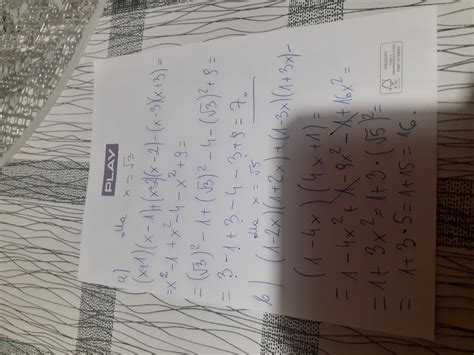 PLAY
a) dla x = √3
(x+1)(x-1)+(x+2)(x-2)-(x-3)(x+3)=
= x²-1+x²-4-x²+9=
= (√3)²-1+(√3)²-4-(√3)²+9=
= 3-1+3-4-3+9=7.
b) dla x = √5
(1-2x)(1+2x)+(1-3x)(1+3x)-
(1-4x)(4x+1)=
= 1-4x²+1-9x²-1+16x²=
= 1+3x²=1+3·(√5)²=
= 1+3·5=1+15=16.
FSC